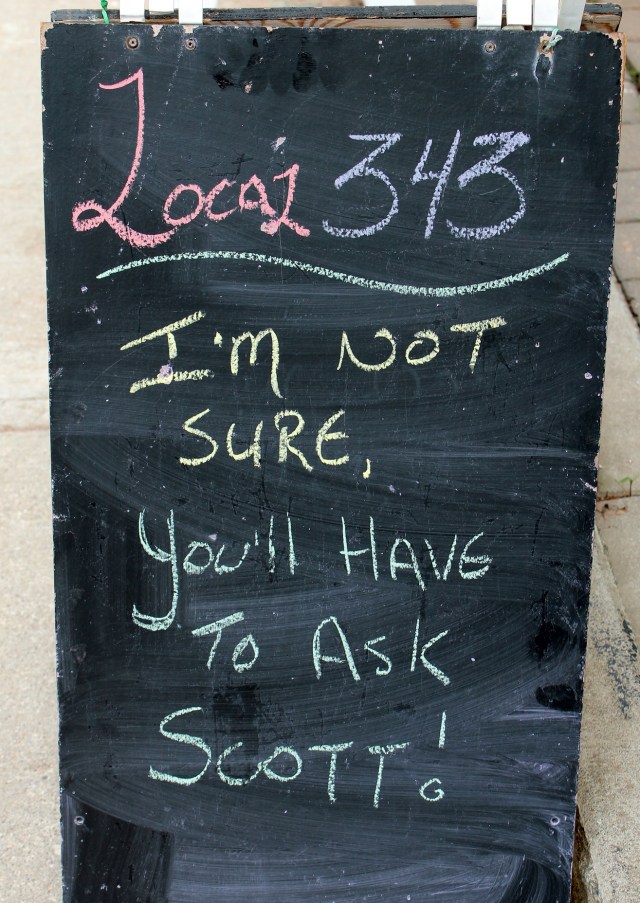 Local 343
I'm NOT
SURE,
You'll HAVE
To Ask
Scott!